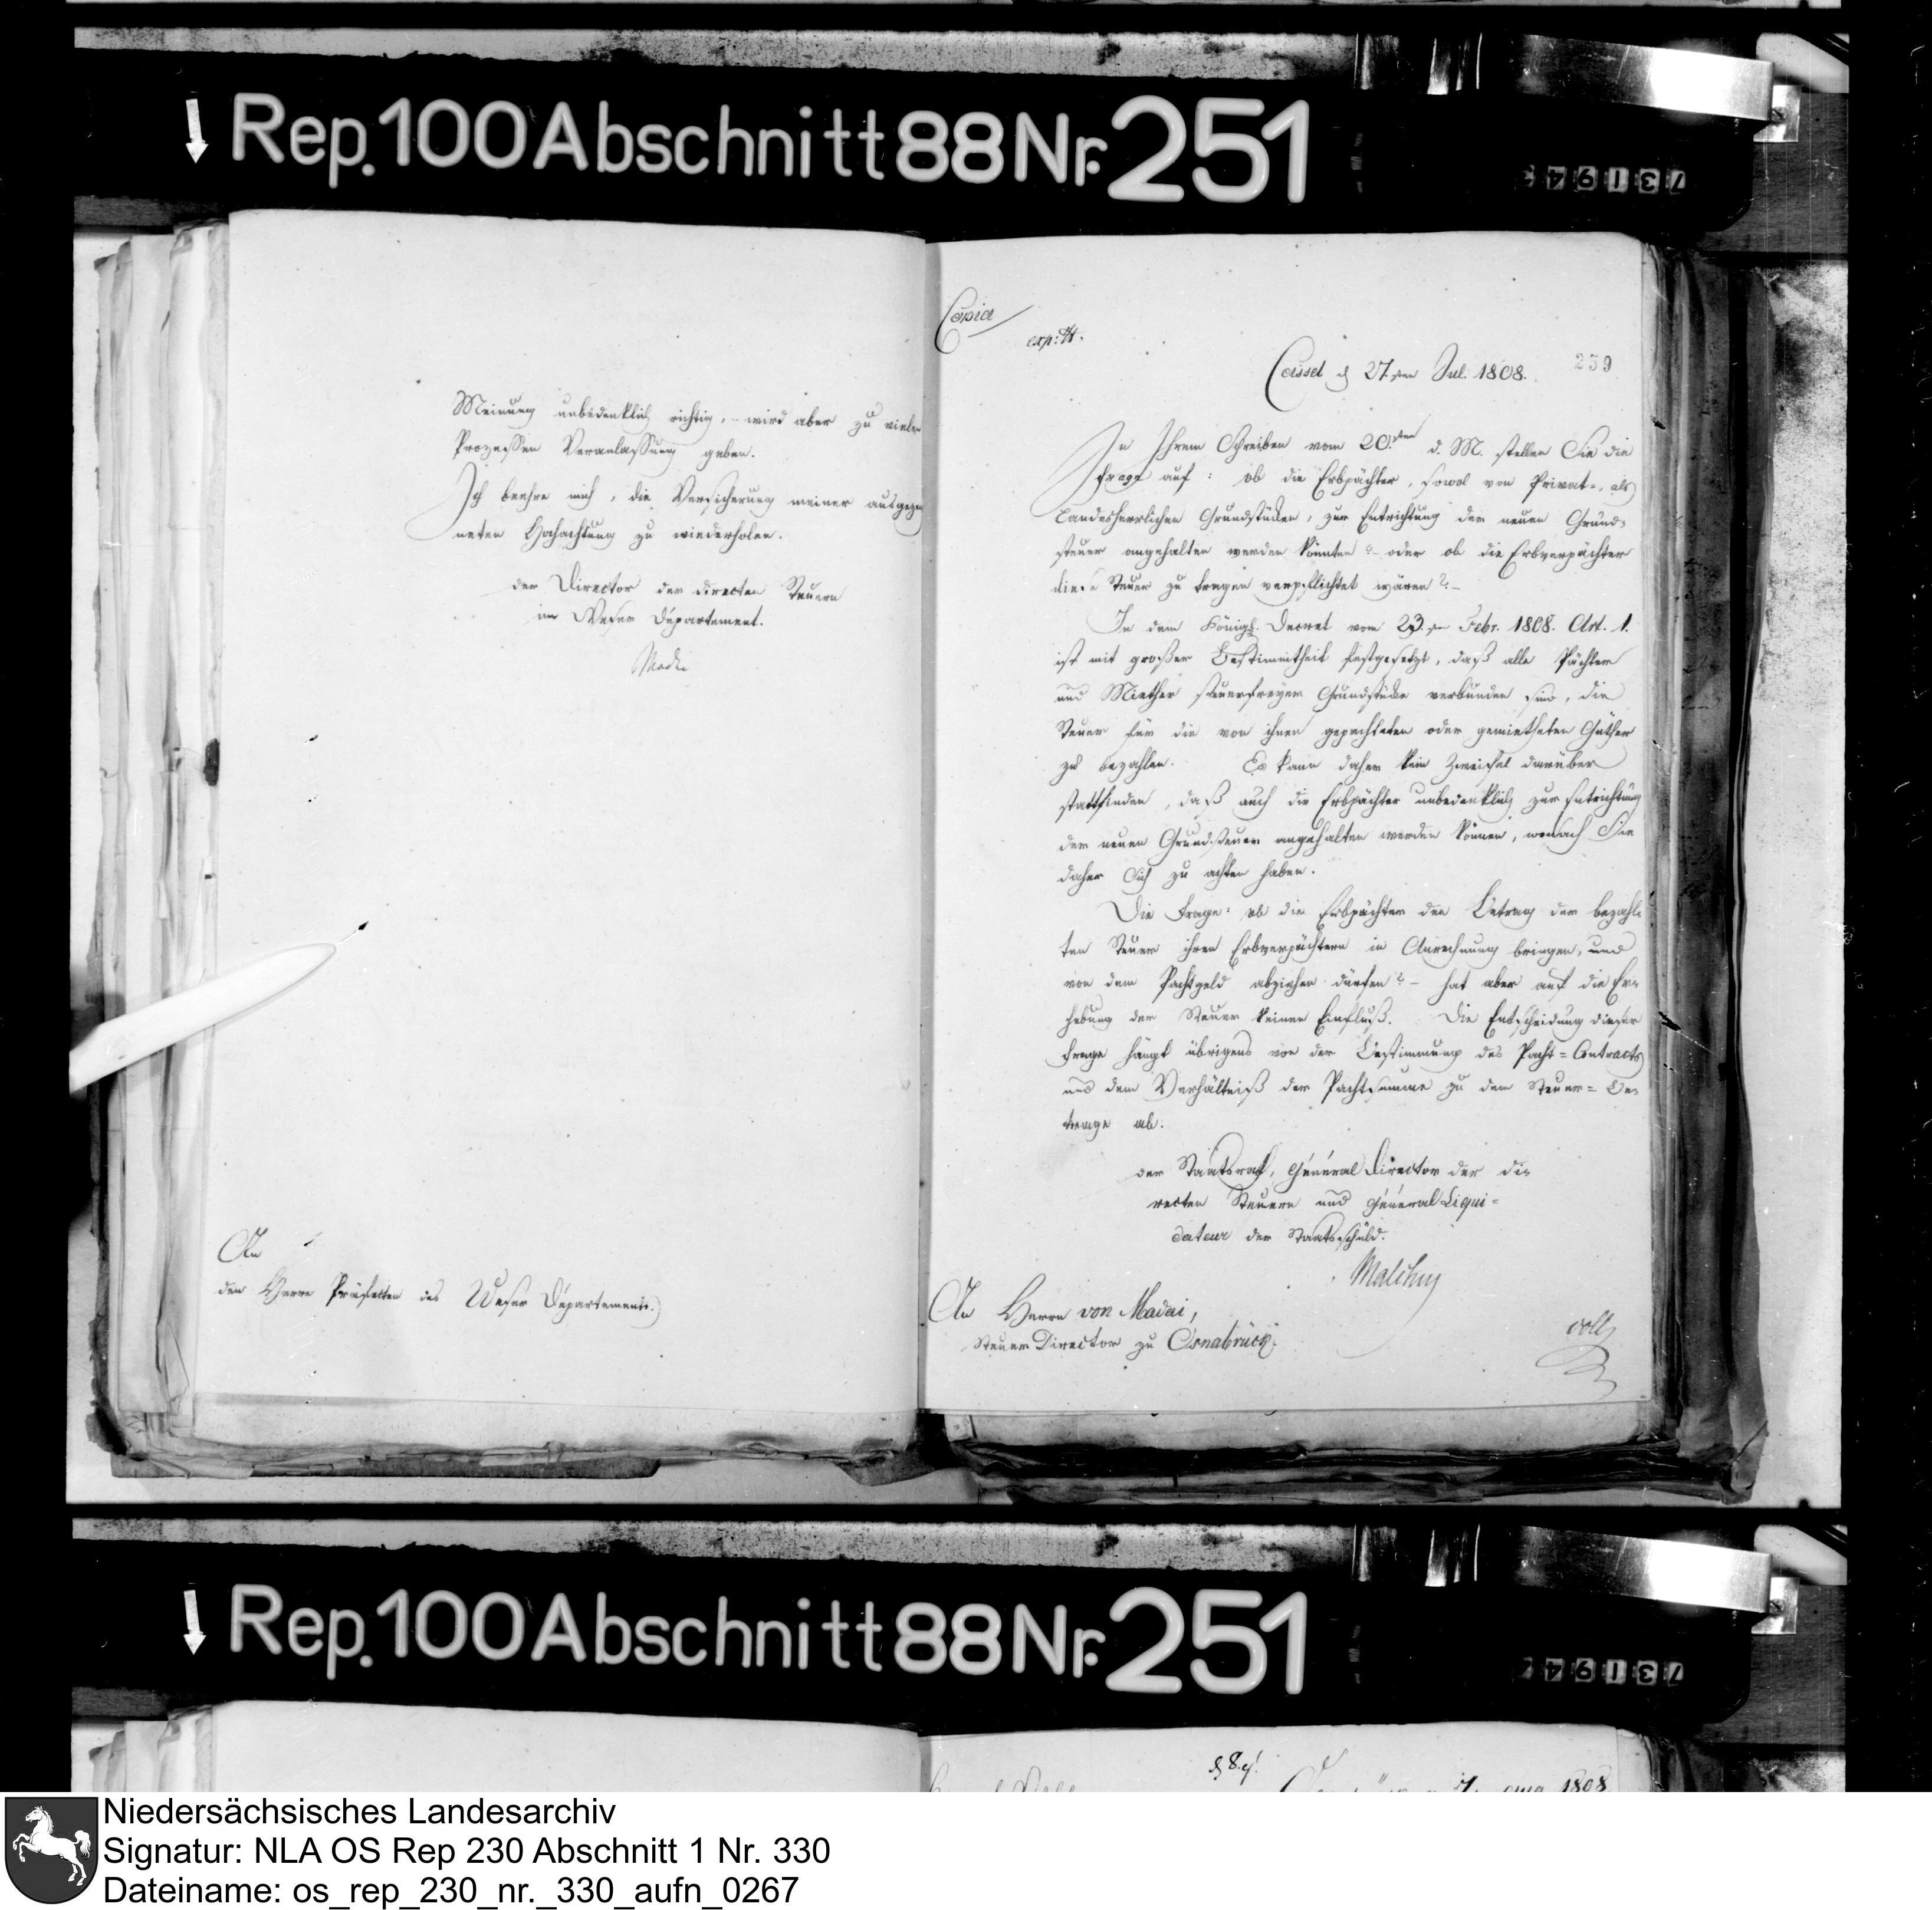 Rep. 100 Abschnitt 88 Nr. 251
Meinung unbedenklich richtig, – wird aber zu vielen
Prozessen Veranlassung geben.
Ich beehre mich, die Versicherung meiner ausgezeich
neten Hochachtung zu wiederholen.
der Director der directen Steuern
im Weser Département.
Madai
An
den Herrn Präfecten des Weser Départements.
Copia
exp:
Cassel d 27.sten Jul. 1808.
259
In Ihrem Schreiben vom 20.sten d. M. stellen Sie die
Frage auf: ob die Erbpächter, sowol von Privat-, als
Landesherrlichen Grundstücken, zur Entrichtung der neuen Grund-
steuer angehalten werden könnten? – oder ob die Erbverpächter
diese Steuer zu tragen verpflichtet wären? –
In dem Königl. Decret vom 23.sten Febr. 1808. Art. 1.
ist mit großer Bestimmtheit festgesetzt, daß alle Pächter
und Miether steuerfreyer Grundstücke verbunden sind, die
Steuer für die von ihnen gepachteten oder gemietheten Güther
zu bezahlen. Es kann daher kein Zweifel darüber
stattfinden, daß auch die Erbpächter unbedenklich zur Entrichtung
der neuen Grundsteuer angehalten werden können, wonach Sie
daher Sich zu achten haben.
Die Frage: ob die Erbpächter den Betrag der bezahl-
ten Steuer ihren Erbverpächtern in Anrechnung bringen, und
von dem Pachtgeld abziehen dürfen? – hat aber auf die Er-
hebung der Steuer keinen Einfluß. Die Entscheidung dieser
Frage hängt übrigens von der Bestimmung des Pacht=Contracts
und dem Verhältniß der Pachtsumme zu dem Steuer=Be-
trage ab.
der Staatsrath, Général Director der di-
recten Steuern und Général Liqui=
dateur der Staatsschuld.
Malchus
An Herrn von Madai,
Steuer Director zu Osnabrück.
Rep. 100 Abschnitt 88 Nr. 251
1808
Niedersächsisches Landesarchiv
Signatur: NLA OS Rep 230 Abschnitt 1 Nr. 330
Dateiname: os_rep_230_nr._330_aufn_0267